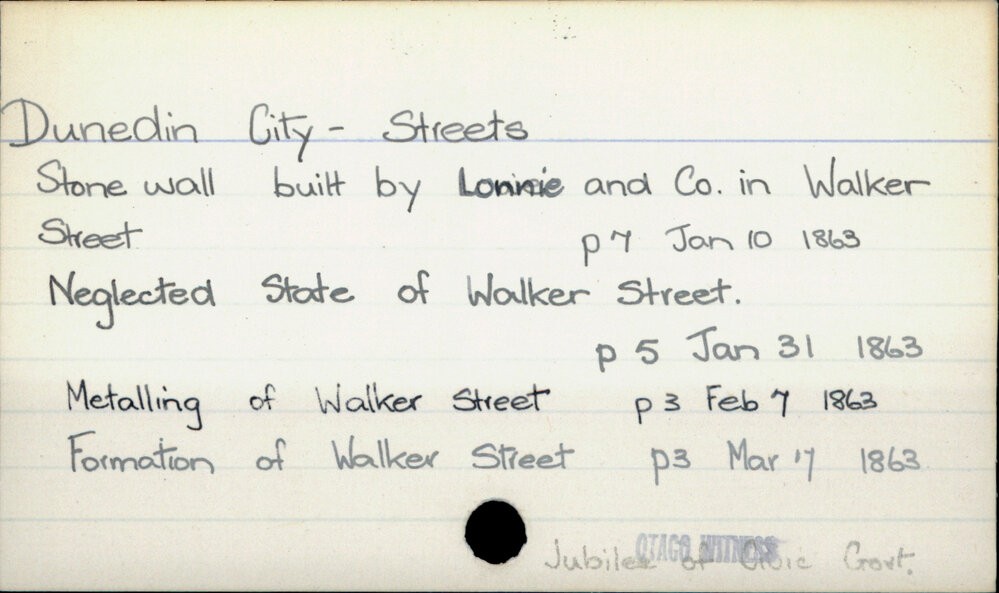 Dunedin City - Streets
Stone wall built by Lonnie and Co. in Walker
Street p7 Jan 10 1863
Neglected State of Walker Street.
p 5 Jan 31 1863
Metalling of Walker Street p3 Feb 7 1863
Formation of Walker Street p3 Mar 7 1863
OTAGO WITNESS
Jubilee of Civic Govt.